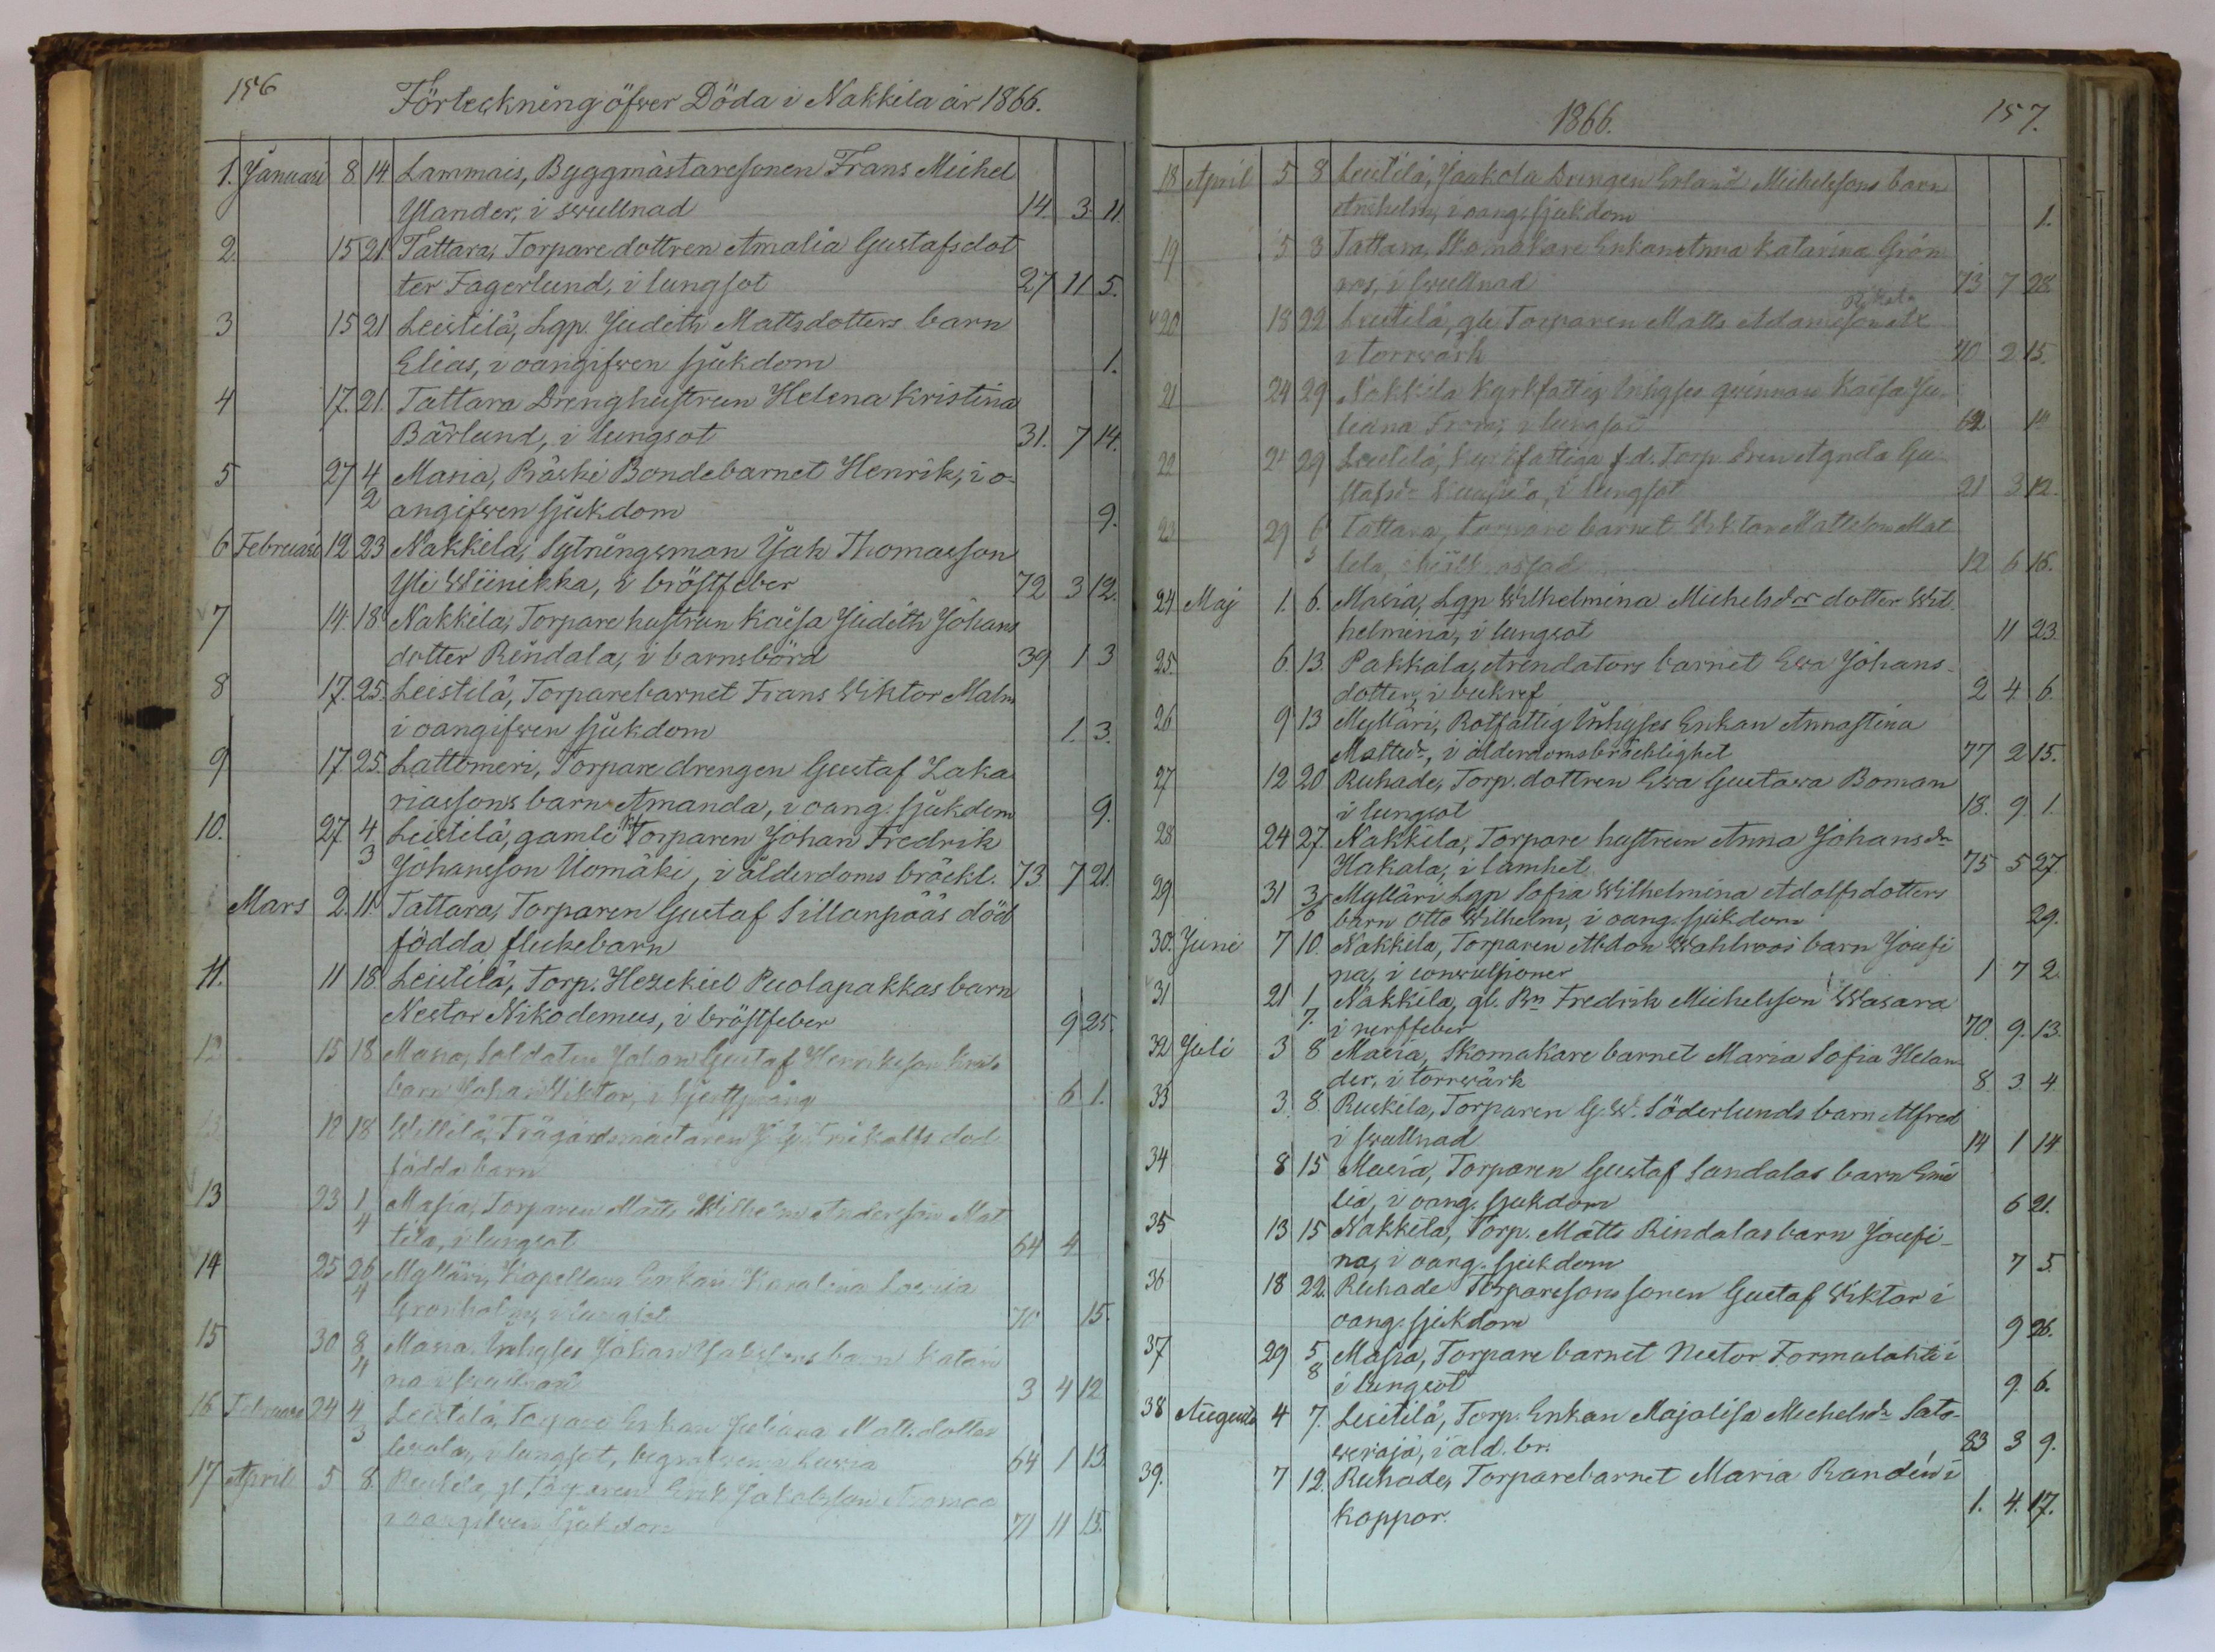 156
Förteckning öfver Döda i Nakkila år 1866.
1. Januari 8 14 Lammais, Byggmästaresonen Frans Michel
Ylander, i swullnad 14 3 11.
2. 15 21 Tattara, Torparedottren Amalia Gustafsdot
ter Fagerlund, i lungsot 27 11 5.
3 15 21 Leistilä, Lgp. Judith Mattsdotters barn
Elias, i oangifwen sjukdom 1.
4 17. 21. Tattara Drenghustrun Helena Kristina
Bärlund, i lungsot 31. 7 14.
5 27 4/2 Masia, Räski Bondebarnet Henrik, i o-
angifwen sjukdom 9.
6 Februari 12 23 Nakkila, Sytningsman Jak Thomasson
Yli Wiinikka, i bröstfeber 72 3 12.
7 14. 18 Nakkila, Torpare hustrun Kaisa Judith Johans
dotter Rindala, i barnsbörd 39 1 3
8 17. 25. Leistilä, Torparebarnet Frans Wiktor Malm
i oangifwen sjukdom 1. 3.
9 17 25. Lattomeri, Torpare drengen Gustaf Zaka
riassons barn Amanda, i oang. sjukdom 9.
10. 27 4/3 Leistilä, gamle Torparen Johan Fredrik
Johansson Uomäki, i ålderdoms bräckl. 73 7 21.
Mars 2. 11. Tattara, Torparen Gustaf Sillanpääs död
födda flickebarn
11. 11 18 Leistilä, Torp. Hezekiel Puolapakkas barn
Nestor Nikodemus, i bröstfeber 9 25.
12 15 18 Masia, Soldaten Johan Gustaf Henriksson
barn Johan Wiktor, i 6 1.
12 18 Willilä, Trägårdsmästaren död
födda barn
13 23 1/4 Masia, Torparen Matts Wilhelm Andersson Mat
tila, i lungsot 64 4
14 25 26/4 Mylläri, Kapellans Enkan Karolina Lovisa
Grönholm, i lungsot 70 15.
15 30 8/4 Masia Inhyses Johan barn Katari
na i swullnad 3 4 12
16 Februari 24 4/3 Leistilä, Torpare Enkan Juliana Mattsdotter
i lungsot, begrafwen i 64 1 13
17 April 5 8. gl. Torparen Erik Jakobsson
i oangifwen sjukdom 71 11 15.
1866. 157.
18 April 5 8 Leistilä, Jaakola Drengen Erland Michelssons barn
Anshelm, i oang. sjukdom 1.
19 5 8 Tattara, Skomakare Enkan Anna Katarina Grön
ros, i swullnad 73 7 28.
20 18 22 Leistilä, gle Torparen Matts Adamsson
i torrwärk 70 2 15.
21 24 29 Nakkila Kyrkfattig Inhyses qwinnan Kaisa Ju-
liana i lungsot 62
22 29 Leistilä, Kyrkfattiga f.d. Torp. Agnda Gu-
stafsdr i lungsot 21 3 12.
23 29 6/5 Tattara, Torpare barnet Wiktor Mattsson Mat
tila, 12 6 16.
24 Maj 1. 6. Masia, Lgp Wilhelmina Michelsdrs dotter Wil-
helmina, i lungsot 11 23.
25. 6. 13. Pakkala, Arendators barnet Ewa Johans-
dotter, i bukref 2 4 6.
26 9 13 Mylläri, Rotfattig Inhyses Enkan Annastina
Mattsdr, i ålderdomsbräcklighet 77 2 15.
27 12 20 Ruhade, Torp. dottren Ewa Gustawa Boman
i lungsot 18. 9. 1.
28 24 27. Nakkila, Torpare hustrun Anna Johansdr
Hakala, i lamhet 75 5 27
29 31 3/6 Mylläri Lgp Sofia Wilhelmina Adolfsdotters
barn Otto Wilhelm, i oang. sjukdom 29.
30. Juni 7 10. Nakkila, Torparen Abdon Wahlroos barn Josefi
na, i conwulsioner 1 7 2.
31 21 1/7. Nakkila, gl. Bn Fredrik Michelsson Wasara
i nerffeber 70. 9. 13.
32 Juli 3 8 Masia, Skomakare barnet Maria Sofia Helan
der, i torrwärk 8. 3 4.
33 3. 8. Ruskila, Torparen G. W. Söderlunds barn Alfred
i swullnad 14 1 14
34 8 15 Masia, Torparen Gustaf Sandalas barn Emi
lia, i oang. sjukdom 6 21.
35 13 15 Nakkila, Torp. Matts Rindalas barn Josefi-
na, i oang. sjukdom 7 5.
36 18 22. Ruhade Torparesons sonen Gustaf Wiktor i
oang. sjukdom 9 26.
37 29 5/8 Masia, Torpare barnet Nestor Formulahti i
i lungsot 9. 6.
38 Augusti 4 7. Leistilä, Torp. Enkan Majalisa Michelsdr Sata-
weraja, i åld. br. 83 3 9.
39. 7 12. Ruhade, Torparebarnet Maria Randén i
koppor. 1. 4. 17.